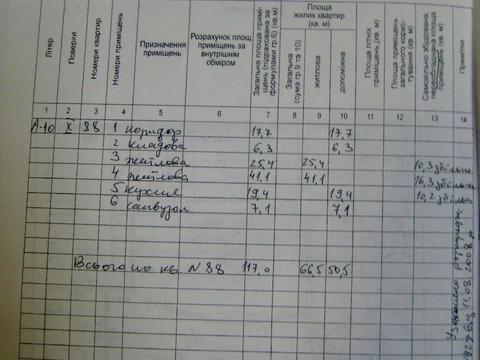 Літер
Поверхи
Номери квартир
Номери приміщень
Призначення приміщень
Розрахунок площ приміщень за внутрішнім обміром
Загальна площа приміщень (підрахована за формулами гр 6) (кв. м)
Площа жилих квартир (кв. м)
Загальна (сума гр 9 та 10)
житлова
допоміжна
Площа літніх приміщень (кв. м)
Площа приміщень загального користування (кв. м)
Самовільно збудована, переобладнана площа приміщень (кв. м)
Примітки
1 2 3 4 5 6 7 8 9 10 11 12 13 14
А-10 X 88 1 коридор 17,7 17,7
2 кладова 6,3 6,3
3 житлова 25,4 25,4 10,3
4 житлова 41,1 41,1 16,3
5 кухня 19,4 19,4 10,2
6 санвузол 7,1 7,1
Всього по кв. N 88 117,0 66,5 50,5
11.08.2008 р.